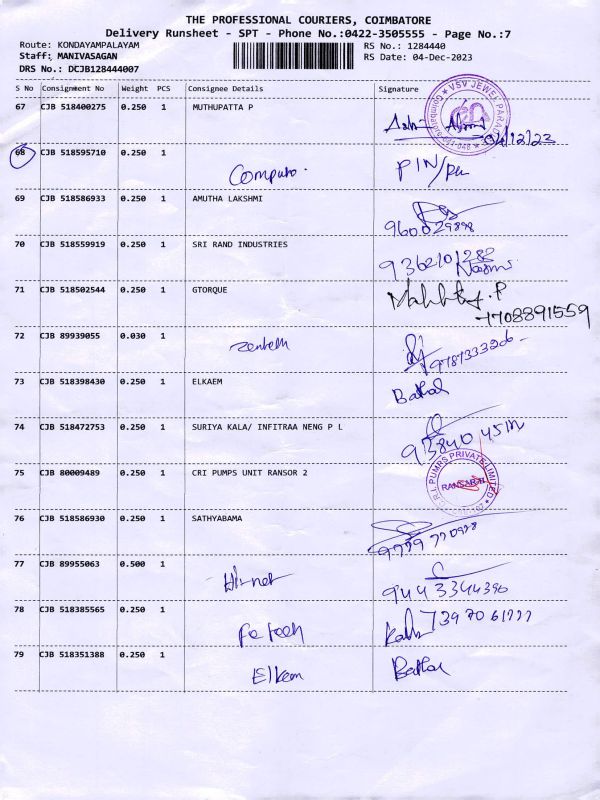 THE PROFESSIONAL COURIERS, COIMBATORE
Delivery Runsheet - SPT - Phone No.:0422-3505555 - Page No.:7
Route: KONDAYAMPALAYAM RS No.: 1284440
Staff: MANIVASAGAN RS Date: 04-Dec-2023
DRS No.: DCJB128444007
S No Consignment No Weight PCS Consignee Details Signature
67 CJB 518400275 0.250 1 MUTHUPATTA P
04/12/23
68 CJB 518595710 0.250 1
Computo.
69 CJB 518586933 0.250 1 AMUTHA LAKSHMI
70 CJB 518559919 0.250 1 SRI RAND INDUSTRIES
71 CJB 518502544 0.250 1 GTORQUE
7708891559
72 CJB 89939055 0.030 1
73 CJB 518398430 0.250 1 ELKAEM
74 CJB 518472753 0.250 1 SURIYA KALA/ INFITRAA NENG P L
75 CJB 80009489 0.250 1 CRI PUMPS UNIT RANSOR 2
C.R.I. PUMPS PRIVATE LIMITED
76 CJB 518586930 0.250 1 SATHYABAMA
77 CJB 89955063 0.500 1
9443344390
78 CJB 518385565 0.250 1
79 CJB 518351388 0.250 1
Elkem